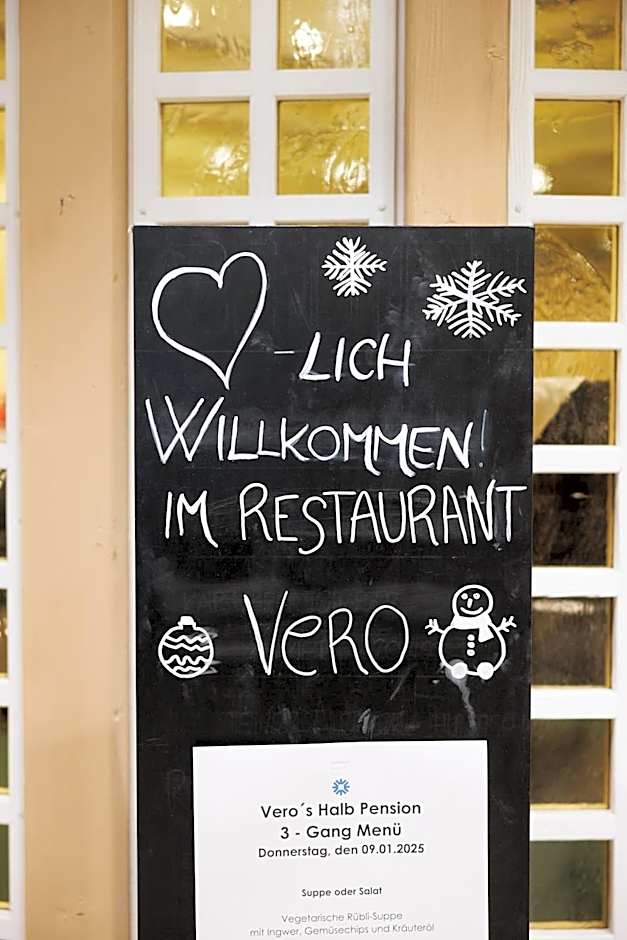 -LICH
WILLKOMMEN!
IM RESTAURANT
VERO
Vero´s Halb Pension
3 - Gang Menü
Donnerstag, den 09.01.2025
Suppe oder Salat
Vegetarische Rübli-Suppe
mit Ingwer, Gemüsechips und Kräuteröl